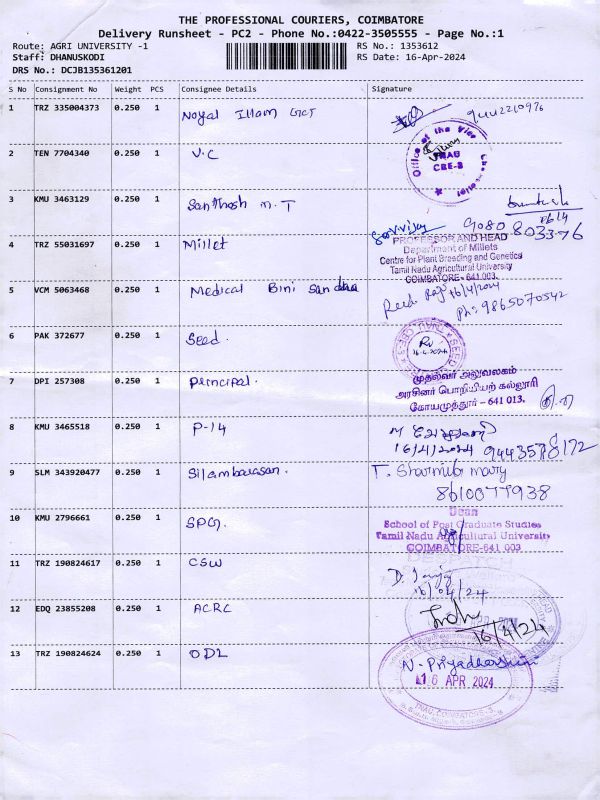 THE PROFESSIONAL COURIERS, COIMBATORE
Delivery Runsheet - PC2 - Phone No.:0422-3505555 - Page No.:1
Route: AGRI UNIVERSITY -1 RS No.: 1353612
Staff: DHANUSKODI RS Date: 16-Apr-2024
DRS No.: DCJB135361201
S No Consignment No Weight PCS Consignee Details Signature
1 TRZ 335004373 0.250 1 Noyal Illam GCT 9442210976
Office of the Vice Chancellor
TNAU
CBE-3
2 TEN 7704340 0.250 1 V.C
3 KMU 3463129 0.250 1 Santhosh M.T
9080 803376
4 TRZ 55031697 0.250 1 Millet
PROFESSOR AND HEAD
Department of Millets
Centre for Plant Breeding and Genetics
Tamil Nadu Agricultural University
COIMBATORE - 641 003.
5 VCM 5063468 0.250 1 Medical Bini Sandhra
16/4/2024
Ph: 9865070542
6 PAK 372677 0.250 1 Seed.
16.4.2024
7 DPI 257308 0.250 1 Principal.
முதல்வர் அலுவலகம்
அரசினர் பொறியியற் கல்லூரி
கோயமுத்தூர் - 641 013.
8 KMU 3465518 0.250 1 P-14
16/4/2024
9 SLM 343920477 0.250 1 Silambarasan.
T. Sharmila mary
8610077938
10 KMU 2796661 0.250 1 SPG.
Dean
School of Post Graduate Studies
Tamil Nadu Agricultural University
COIMBATORE-641 003
11 TRZ 190824617 0.250 1 CSW
16/04/24
12 EDQ 23855208 0.250 1 ACRC
16/4/24
13 TRZ 190824624 0.250 1 ODL
N. Priyadharshini
16 APR 2024
TNAU, COIMBATORE-3